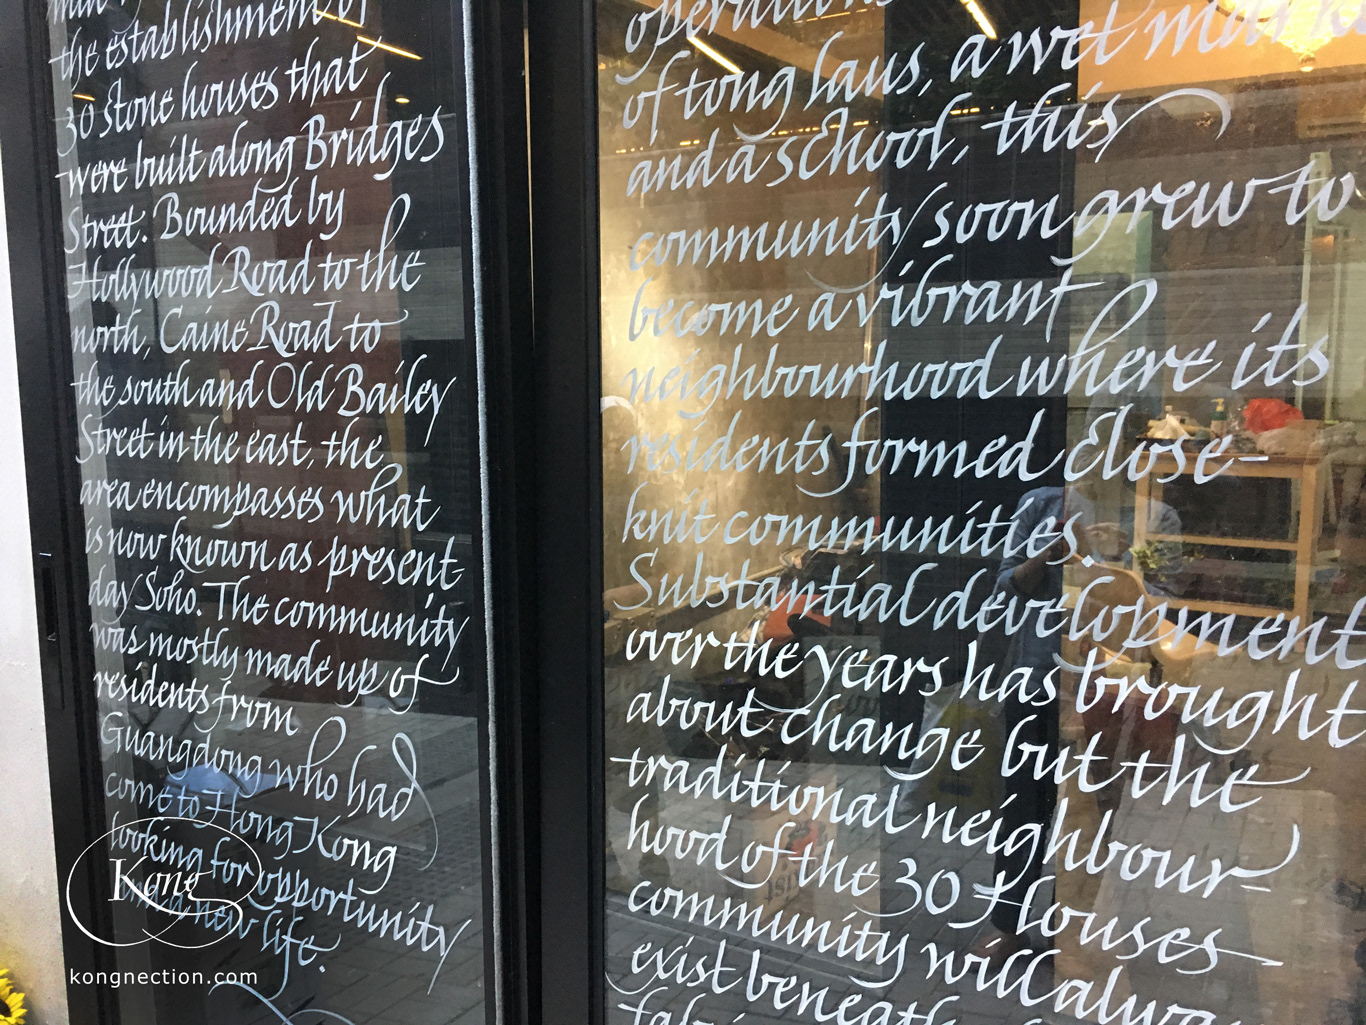 the establishment of
30 stone houses that
were built along Bridges
Street. Bounded by
Hollywood Road to the
north, Caine Road to
the south and Old Bailey
Street in the east, the
area encompasses what
is now known as present-
day Soho. The community
was mostly made up of
residents from
Guangdong who had
come to Hong Kong
looking for opportunity
and a new life.
operations
of tong laus, a wet market
and a school, this
community soon grew to
become a vibrant
neighbourhood where its
residents formed close-
knit communities.
Substantial development
over the years has brought
about change but the
traditional neighbour-
hood of the 30 Houses
community will always
exist beneath
Kong
kongnection.com